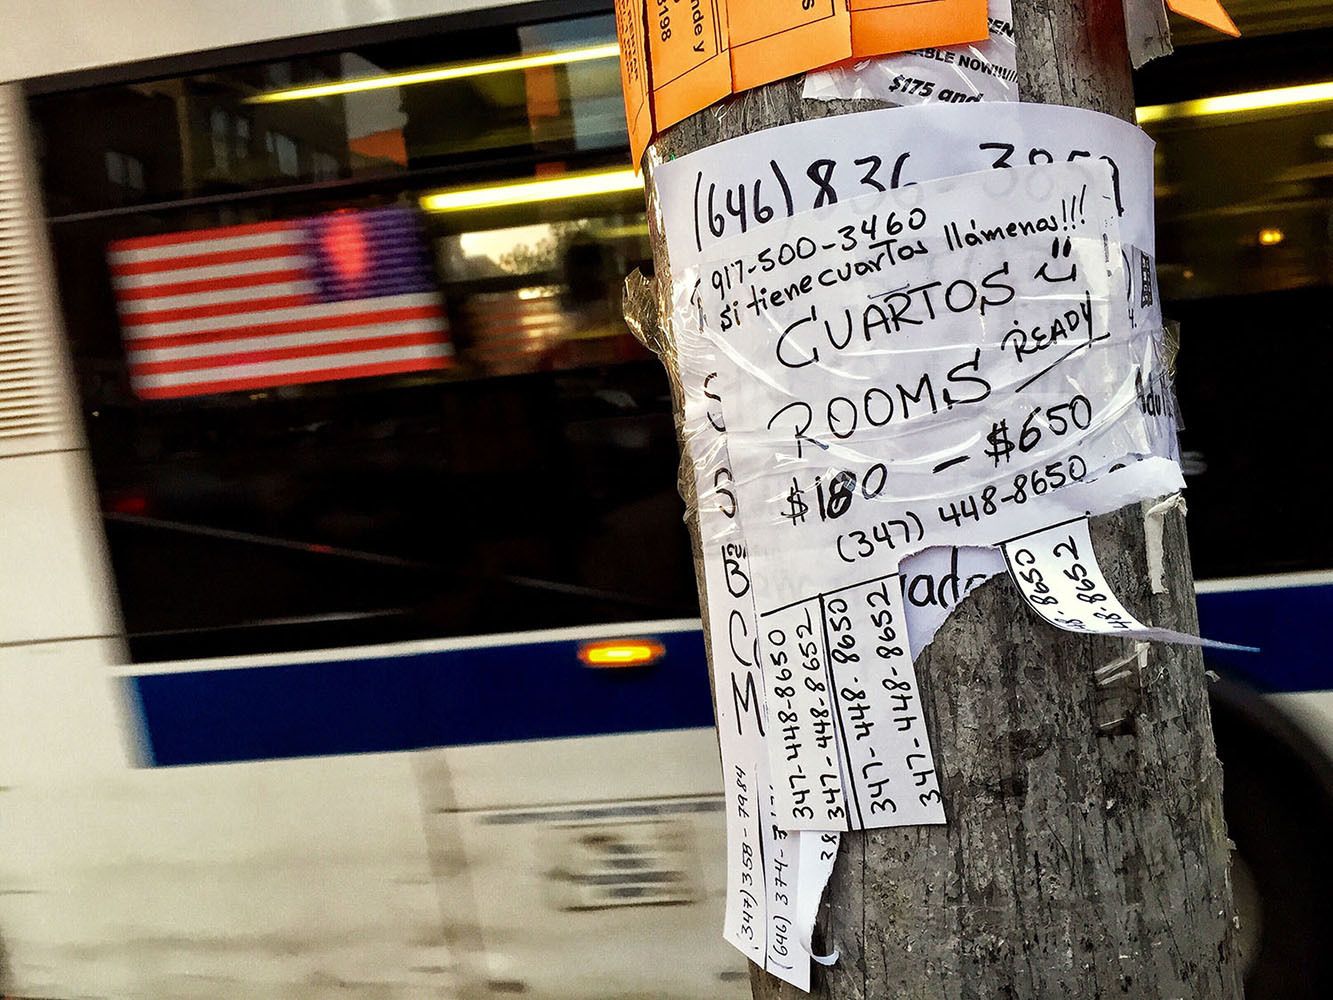 nde y
8198
BLE NOW!!!!!
$175 and
(646) 836 - 385
917-500-3460
si tiene cuartos llámenos!!!
CUARTOS
ROOMS READY
$180 - $650
(347) 448-8650
347-448-8650
347-448-8652
347-448-8650
347-448-8652
48-8650
48-8652
(347) 358-7984
(646) 374-3